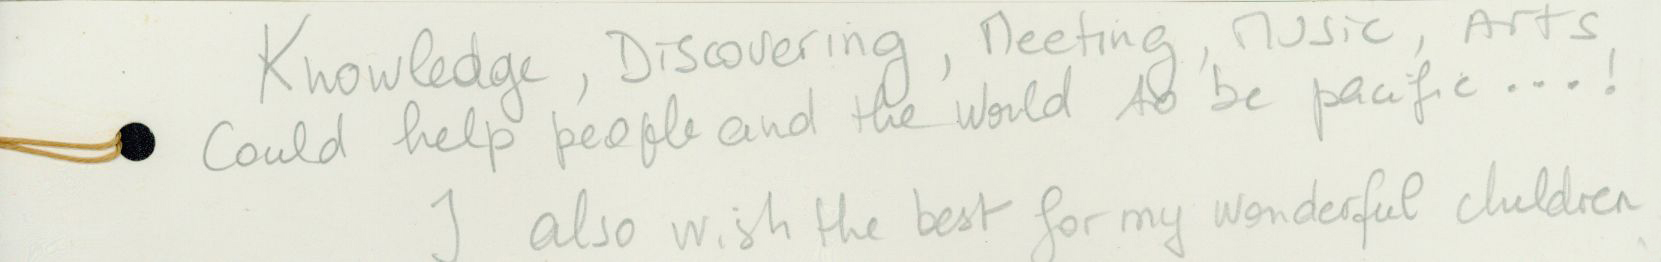 Knowledge, Discovering, Meeting, Music, Arts
Could help people and the world to be pacific....!
I also wish the best for my wonderful children